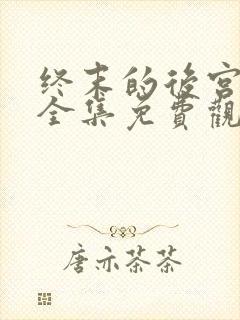 终末的後宫
全集免費觀
唐亦茶茶